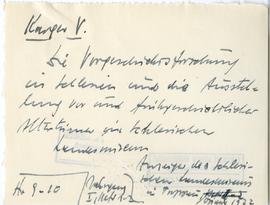 Karger V.
Die Vorgeschichtsforschung
in Schlesien und die Ausstel-
lung vor und frühgeschichtlicher
Altertümer im Schlesischen
Landesmuseum
Anzeiger des Schlesi-
schen Landesmuseums
in Troppau
Troppau 1922
A. 9-20
Jahrgang
I, Heft 1.